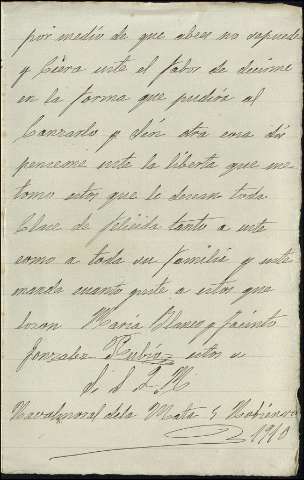 por medio de que aber no sepuede
y Ciera uste el fabor de decirme
en la forma que pudiera al
Canzarlo y sin otra cosa dis
penceme uste la liberta que me
tomo estos que le decean toda
Clace de felicida tanto a uste
como a toda su familia y uste
mande cuanto guste a estos que
lo son Maria Blanco y Jacinto
Gonzalez Rubio estos a
S. S. Q.
Navalmoral de la Mata 4
1910